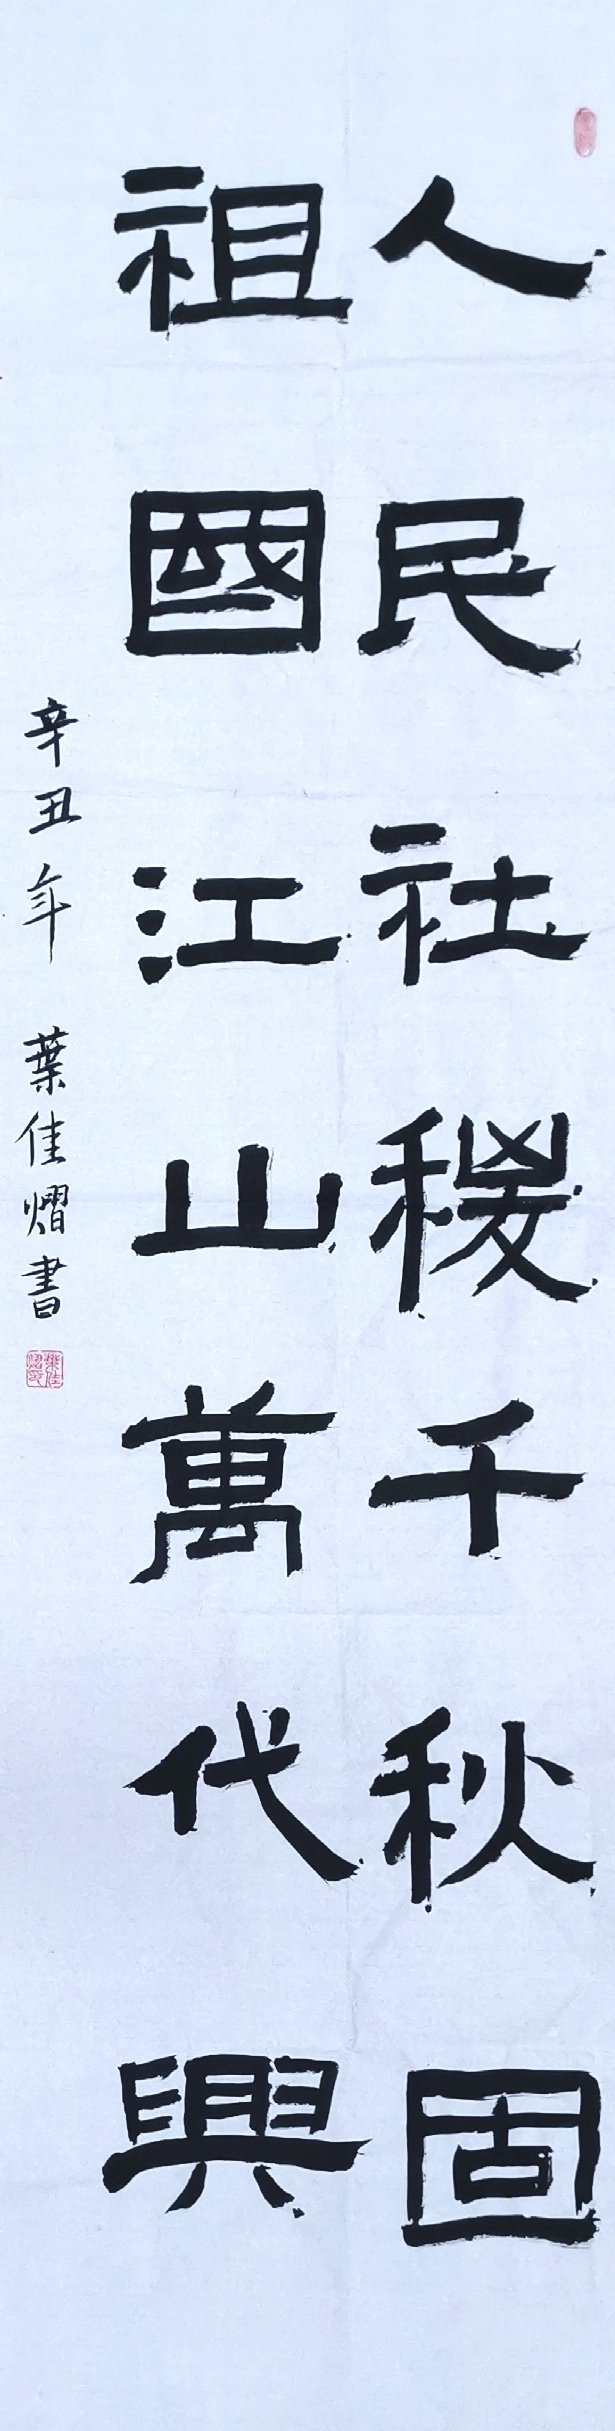 人民社稷千秋固
祖國江山萬代興
辛丑年 葉佳熠書